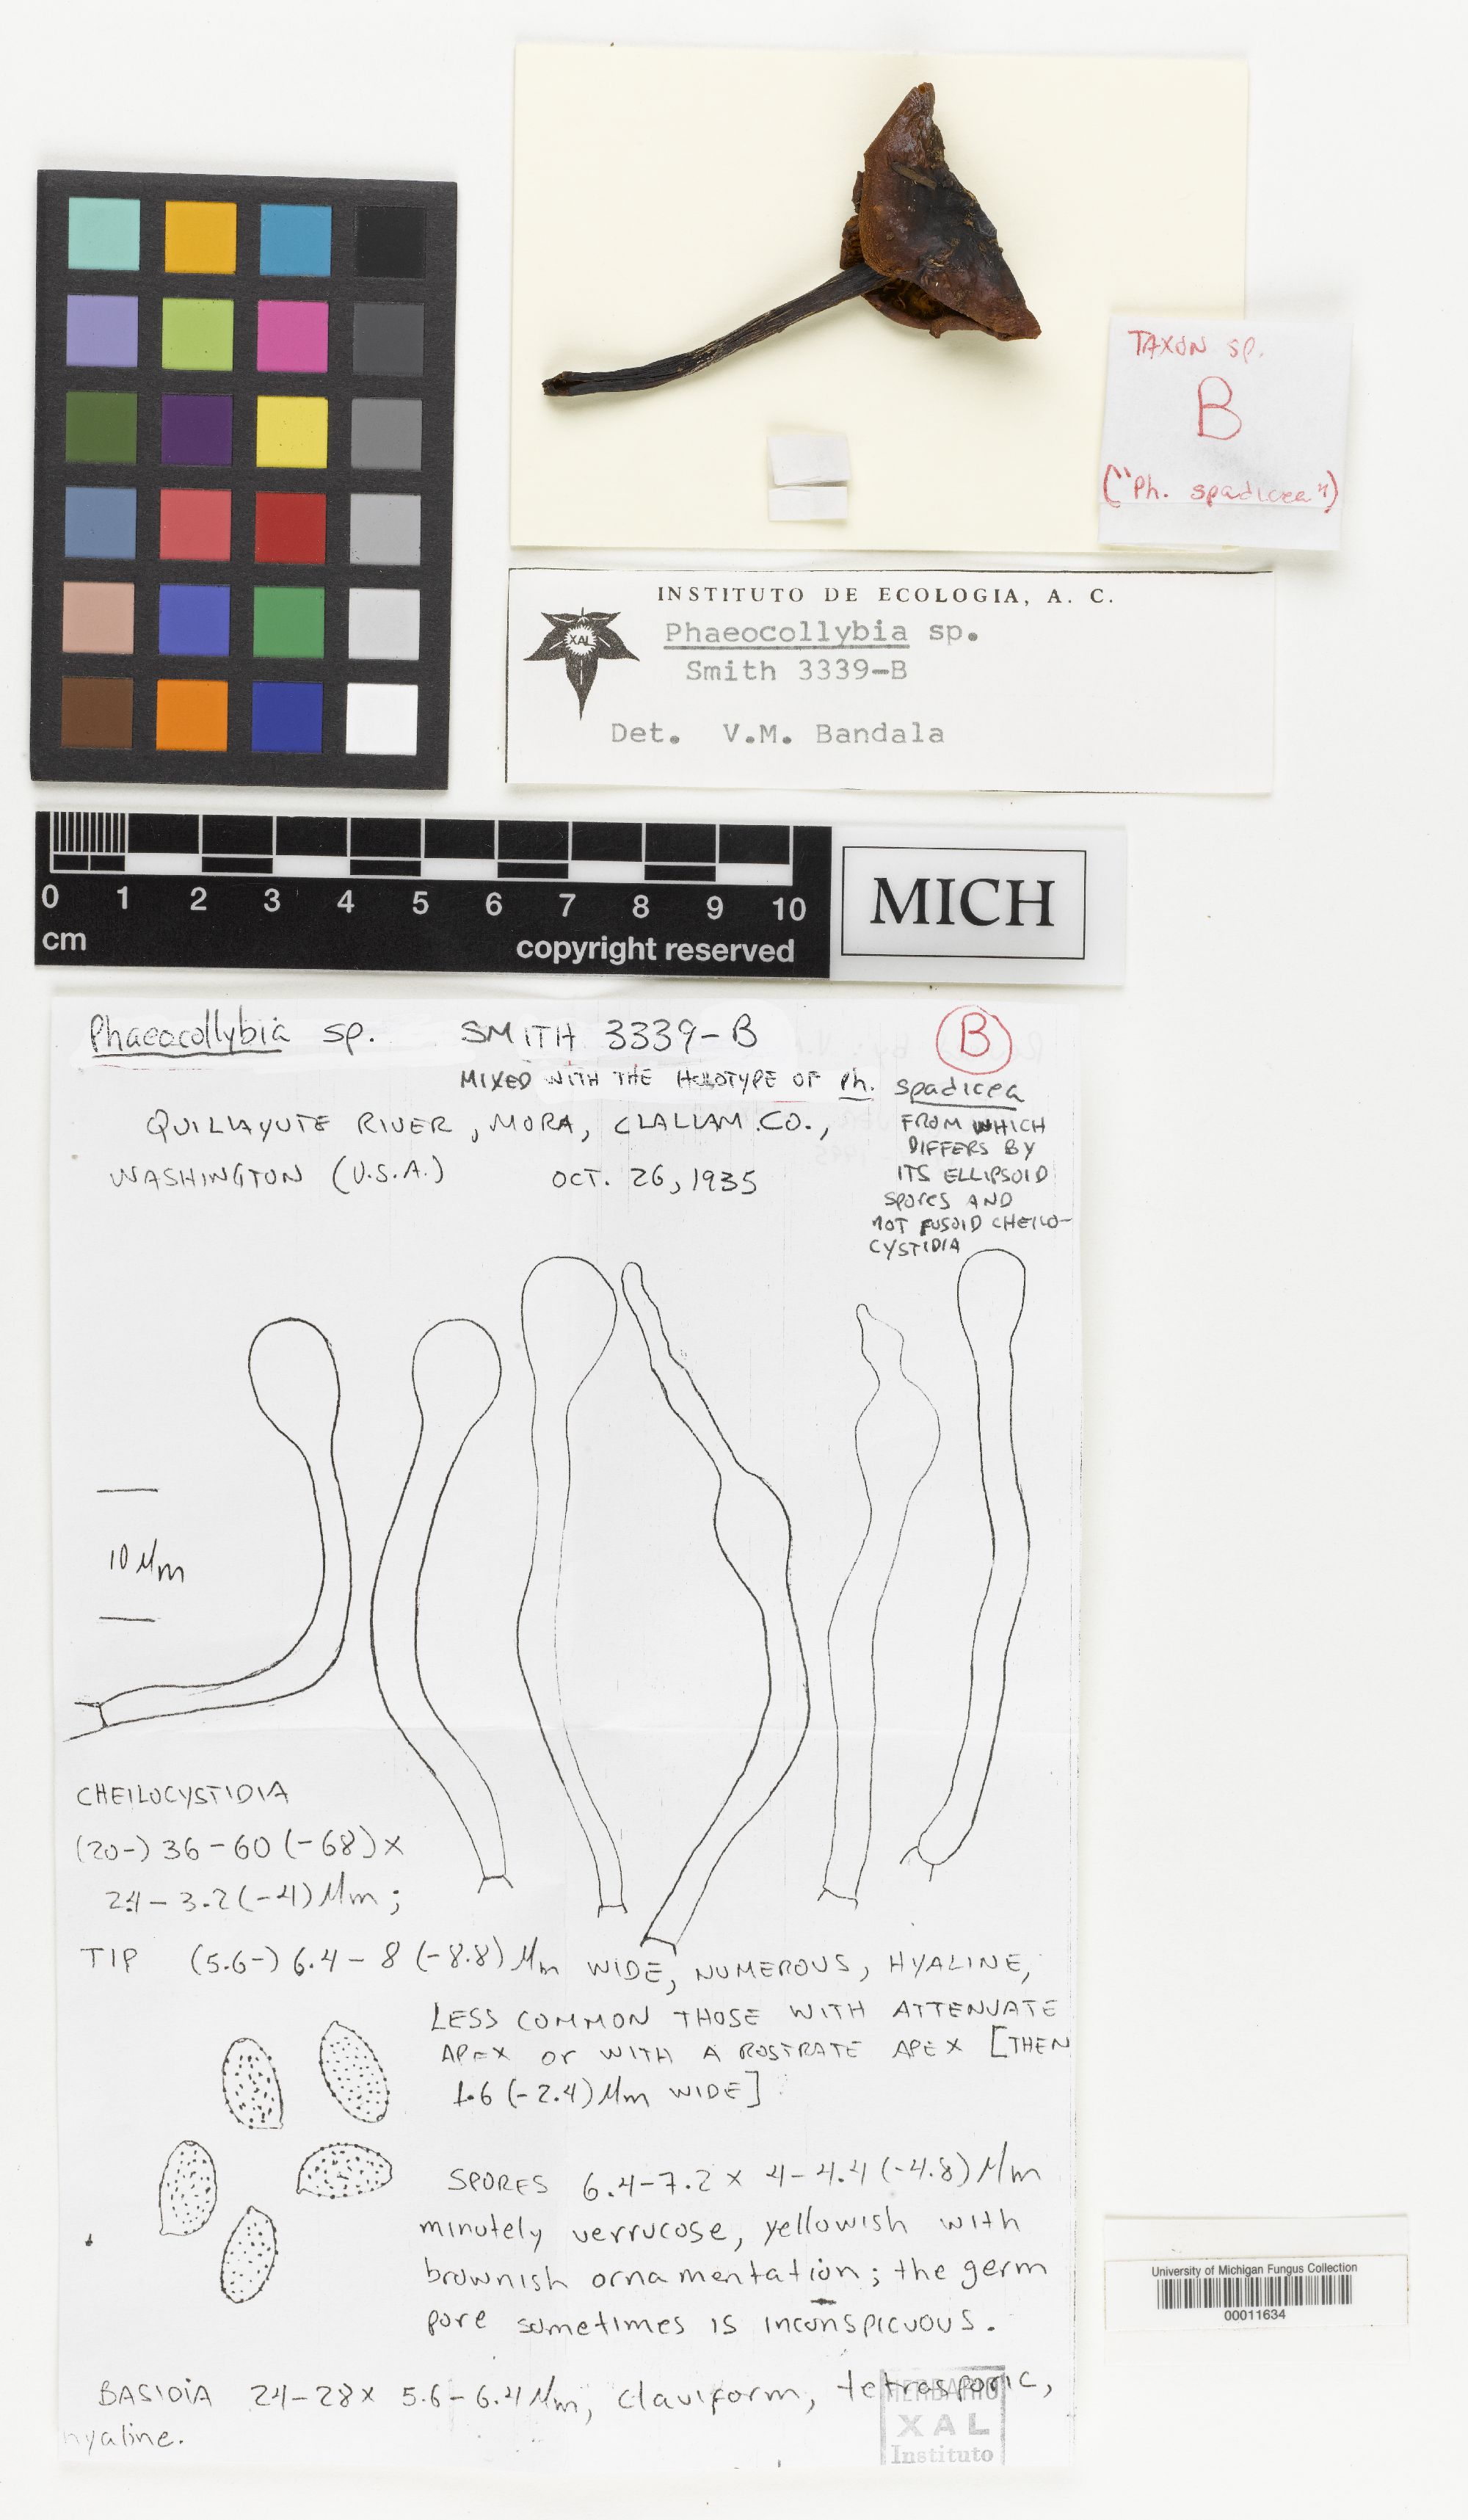 TAXON sp.
B
("Ph. spadicea")
INSTITUTO DE ECOLOGIA, A. C.
XAL
Phaeocollybia sp.
Smith 3339-B
Det. V.M. Bandala
0 1 2 3 4 5 6 7 8 9 10
cm
copyright reserved
MICH
Phaeocollybia sp. SMITH 3339-B
B
MIXED WITH THE HOLOTYPE OF Ph. spadicea
QUILLAYUTE RIVER, MORA, CLALLAM CO.,
WASHINGTON (U.S.A.) OCT. 26, 1935
FROM WHICH
DIFFERS BY
ITS ELLIPSOID
SPORES AND
NOT FUSOID CHEILO-
CYSTIDIA
10 µm
CHEILOCYSTIDIA
(20-) 36-60 (-68) x
2.4-3.2 (-4) µm;
TIP (5.6-) 6.4-8 (-8.8) µm WIDE, NUMEROUS, HYALINE,
LESS COMMON THOSE WITH ATTENUATE
APEX or WITH A ROSTRATE APEX [THEN
1.6 (-2.4) µm WIDE]
SPORES 6.4-7.2 x 4-4.4 (-4.8) µm
minutely verrucose, yellowish with
brownish ornamentation; the germ
pore sometimes is inconspicuous.
BASIDIA 24-28 x 5.6-6.4 µm, claviform, tetrasporic,
hyaline.
HERBARIO
XAL
Instituto
University of Michigan Fungus Collection
00011634